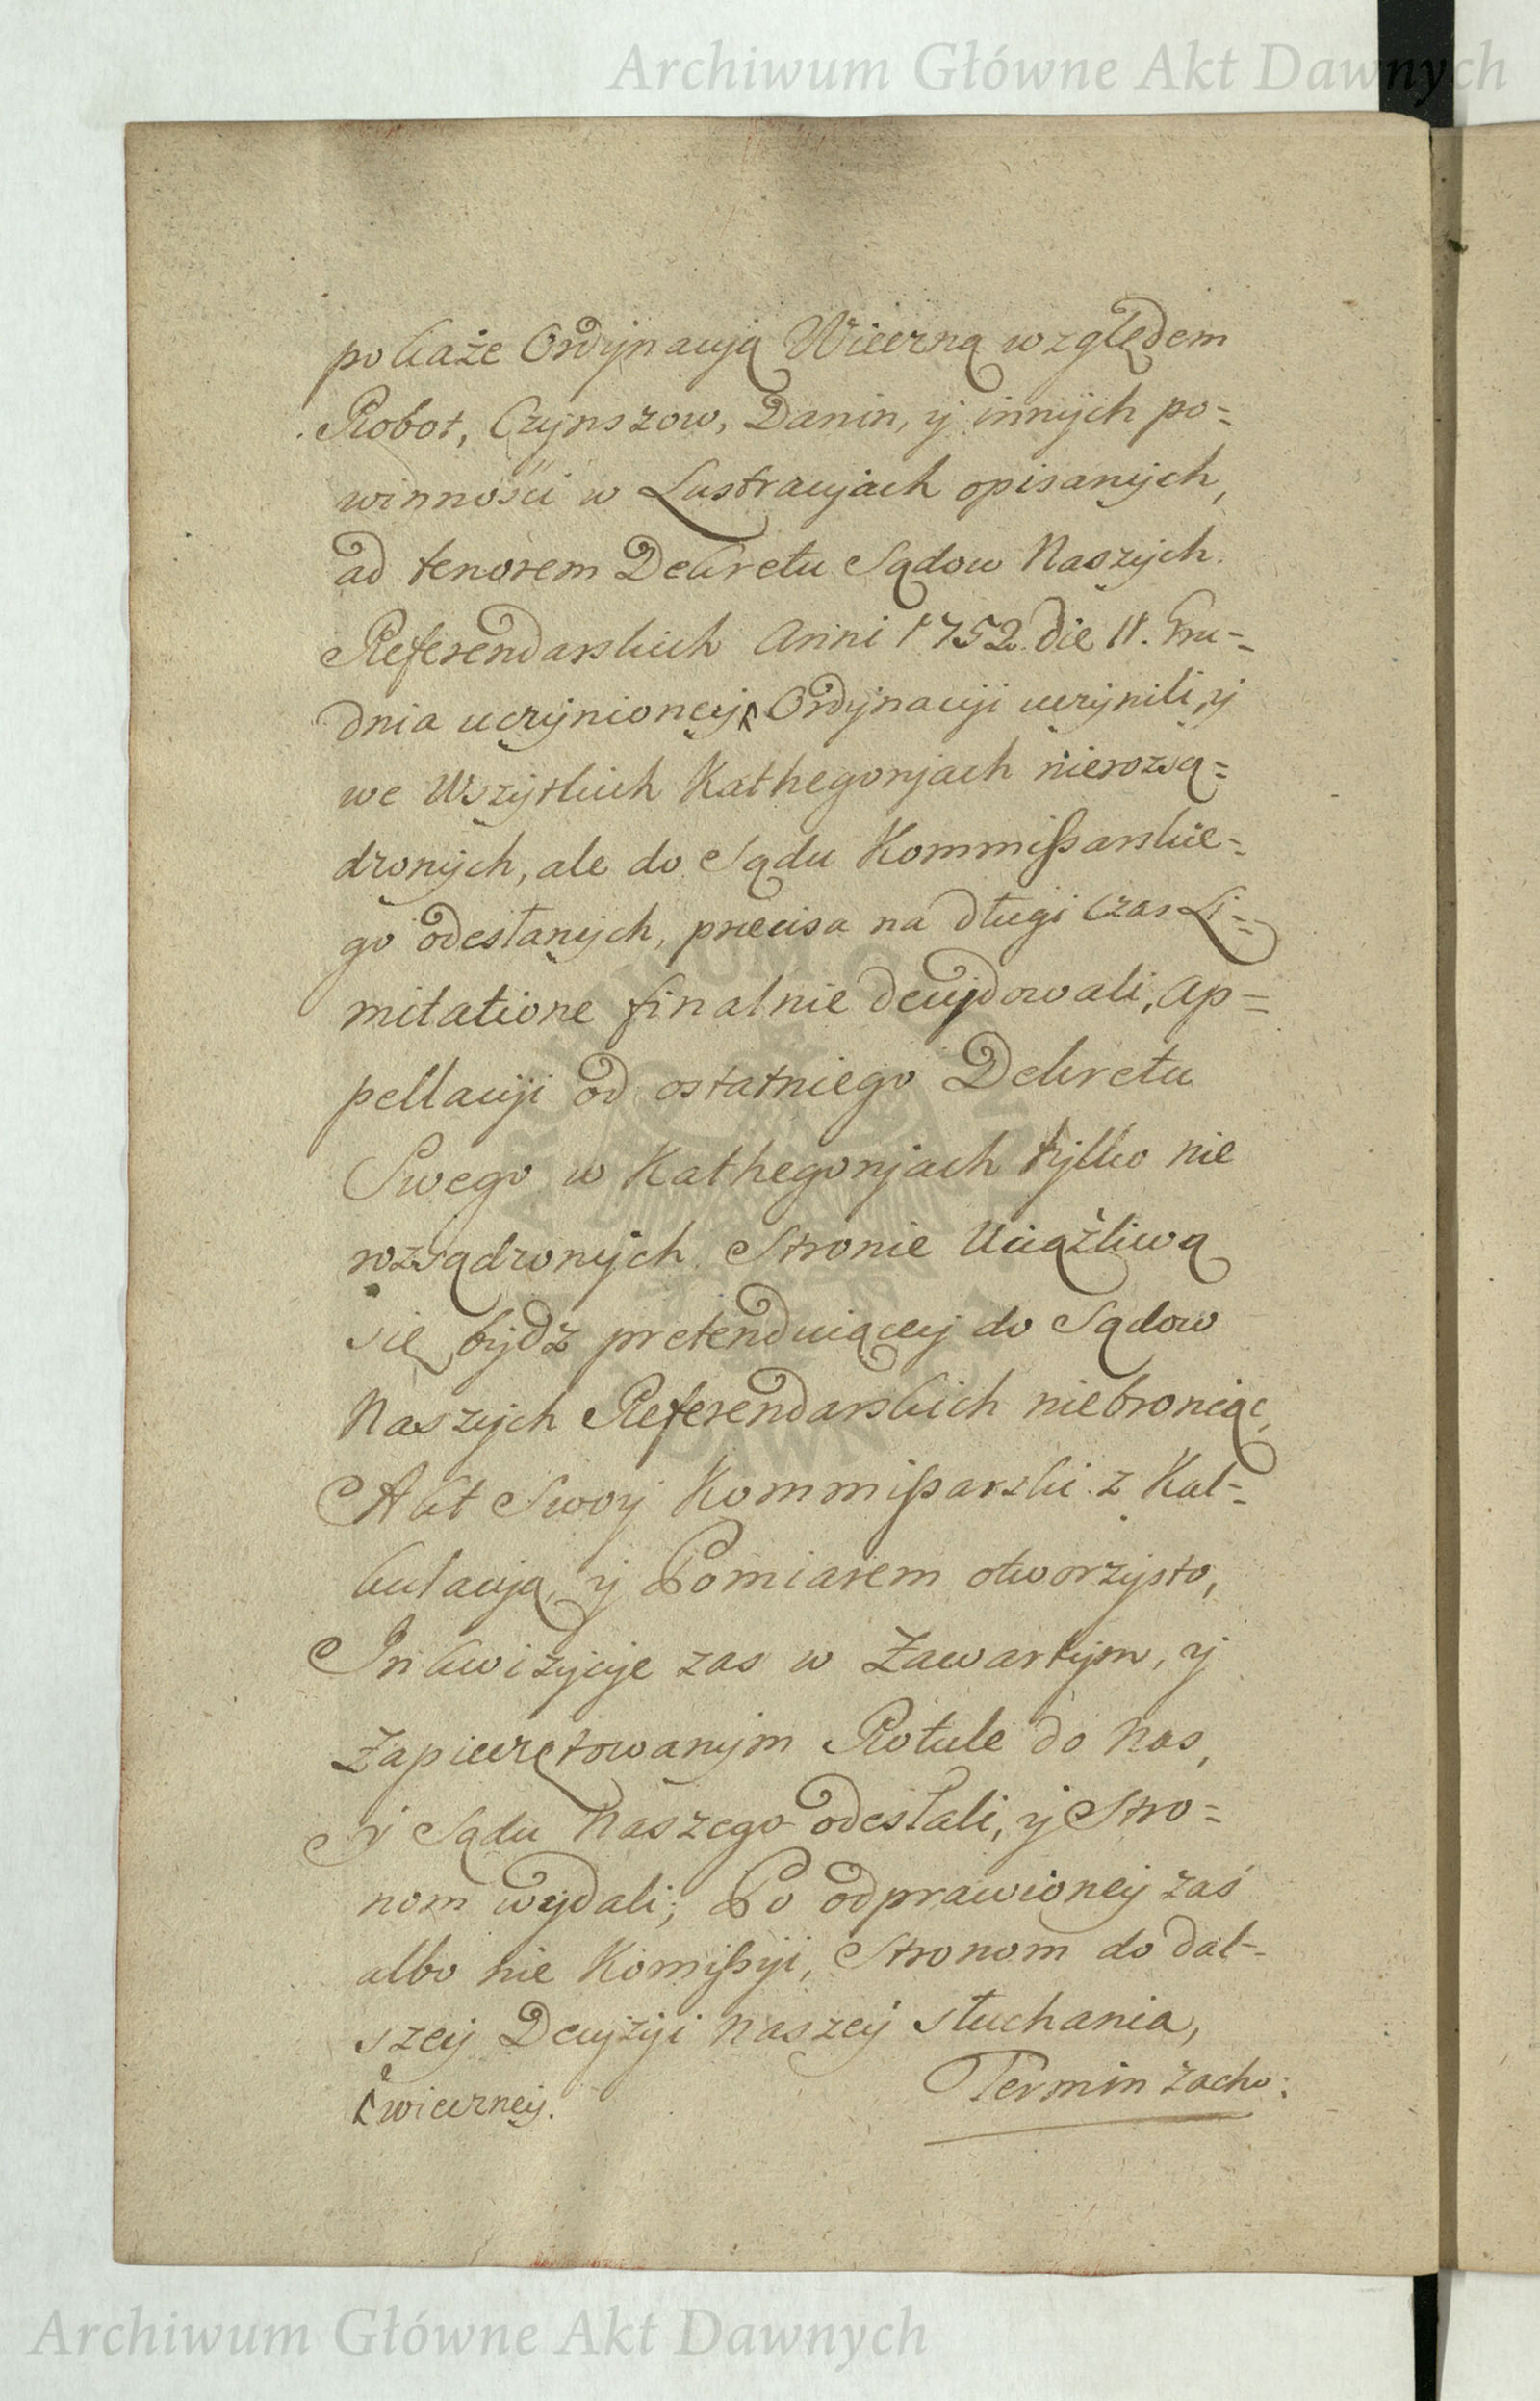 Archiwum Główne Akt Dawnych
pokaże Ordynacyą Wieczną względem
Robot, Czynszow, Danin, y innych po=
winności w Lustracyach opisanych,
ad tenorem Dekretu Sądow Naszych
Referendarskich Anni 1752 die 11. Gru=
dnia uczynioney Ordynacyi uczynili, y
we Wszystkich Kathegoryach nierozsą=
dzonych, ale do Sądu Kommissarskie=
go odesłanych, præcisa na długi Czas Li=
mitatione finalnie decydowali, Ap=
pellacyi od ostatniego Dekretu
Swego w Kathegoryach tylko nie
rozsądzonych Stronie Uciążliwą
się bydz pretenduiącey do Sądow
Naszych Referendarskich niebroniąc,
Akt Swoy Kommissarski z Kal=
kulacyą, y Pomiarem otworzysto,
Inkwizycye zas w Zawartym, y
Zapieczętowanym Rotule do Nas,
y Sądu Naszego odesłali, y Stro=
nom wydali; Po odprawioney zaś
albo nie Komissyi, Stronom do dal=
szey Decyzyi Naszey słuchania,
wieczney.
Termin zacho:
Archiwum Główne Akt Dawnych